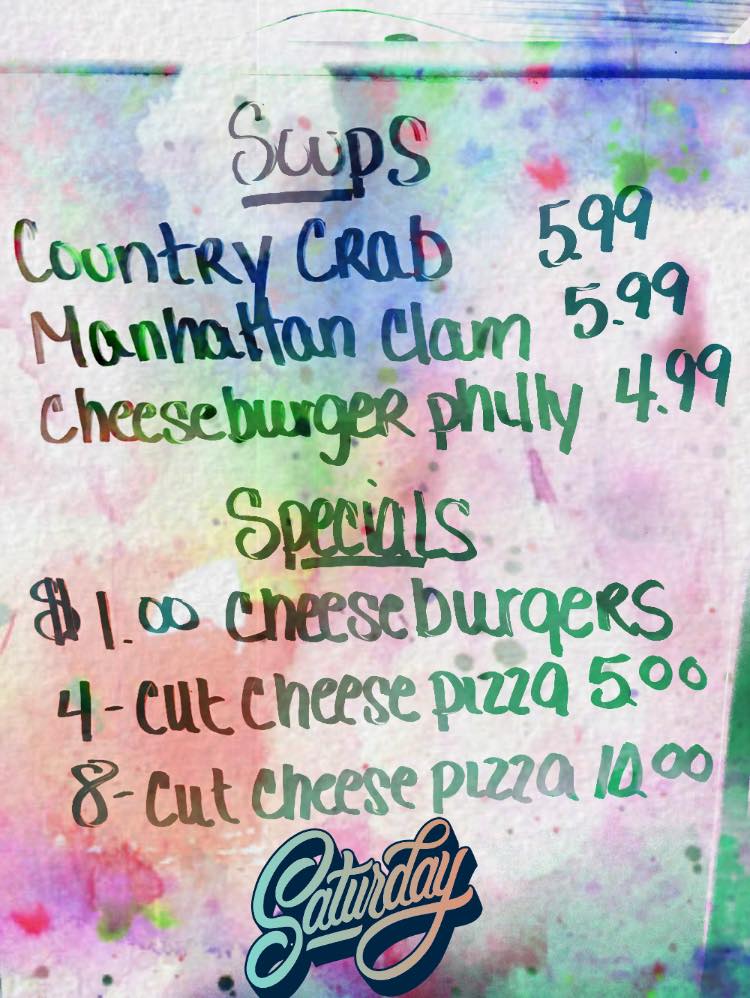 Soups
Country Crab 5.99
Manhattan Clam 5.99
Cheeseburger philly 4.99
Specials
$1.00 cheeseburgers
4-cut cheese pizza 5.00
8-cut cheese pizza 10.00
Saturday